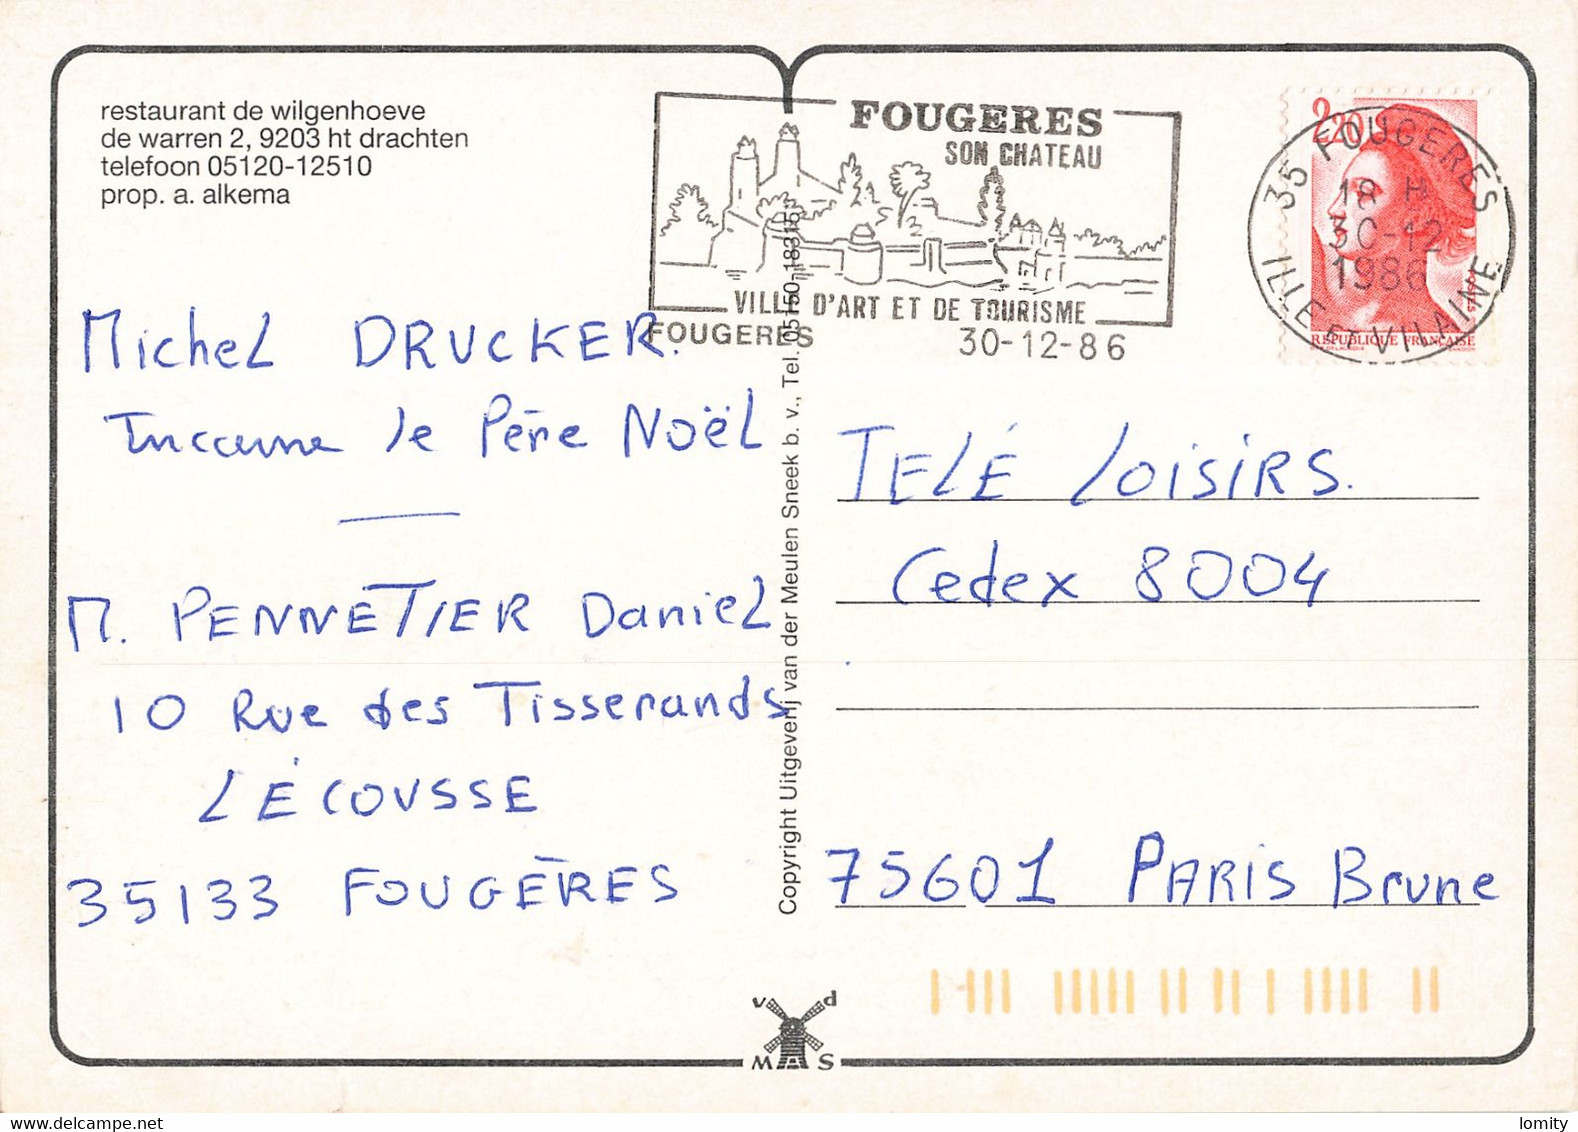 restaurant de wilgenhoeve
de warren 2, 9203 ht drachten
telefoon 05120-12510
prop. a. alkema
FOUGERES
SON CHATEAU
VILLE D'ART ET DE TOURISME
FOUGERES 30-12-86
2,20
35 FOUGERES
18 H
30-12
1986
ILLE ET VILAINE
REPUBLIQUE FRANÇAISE
Michel DRUCKER.
Incarne le Père Noël
M. PENNETIER Daniel
10 Rue des Tisserands
LÉCOUSSE
35133 FOUGÈRES
Copyright Uitgeverij van der Meulen Sneek b. v., Tel. 05150-18315
TELÉ LOISIRS.
Cedex 8004
75601 PARIS Brune
v d
M S
lomity